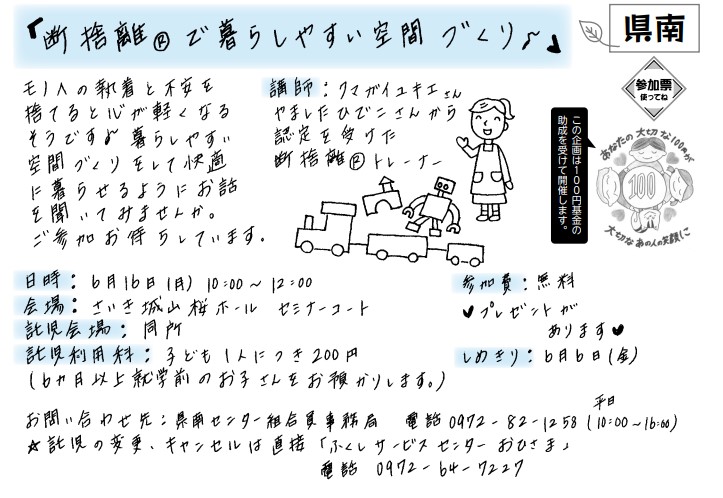 『断捨離®で暮らしやすい空間づくり♪』
県南
参加票
使ってね
モノへの執着と不安を
捨てると心が軽くなる
そうです♪ 暮らしやすい
空間づくりをして快適
に暮らせるようにお話
を聞いてみませんか。
ご参加お待ちしています。
講師：クマガイユキエさん
やましたひでこさんから
認定を受けた
断捨離®トレーナー
この企画は100円基金の
助成を受けて開催します。
あなたの大切な100円が
100
大切なあの人の笑顔に
日時：6月16日(月) 10:00〜12:00
会場：さいき城山桜ホール セミナーコート
託児会場：同所
託児利用料：子ども1人につき200円
(6ヵ月以上就学前のお子さんをお預かりします。)
参加費：無料
♥プレゼントが
あります♥
しめきり：6月6日(金)
お問い合わせ先：県南センター組合員事務局 電話0972-82-1258 (平日 10:00〜16:00)
☆託児の変更、キャンセルは直接「ふくしサービスセンターおひさま」
電話 0972-64-7227